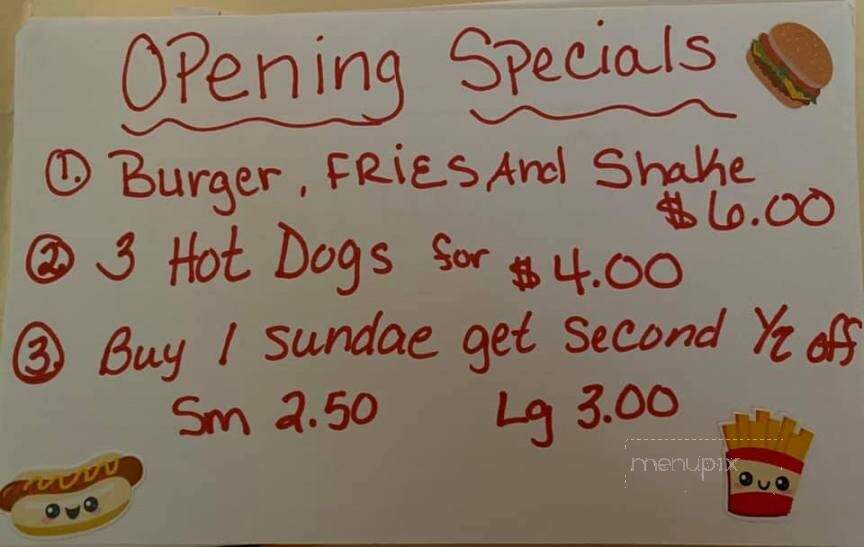 Opening Specials
1. Burger, FRiES And Shake
$6.00
2. 3 Hot Dogs for $4.00
3. Buy 1 sundae get second 1/2 off
Sm 2.50 Lg 3.00
menupix